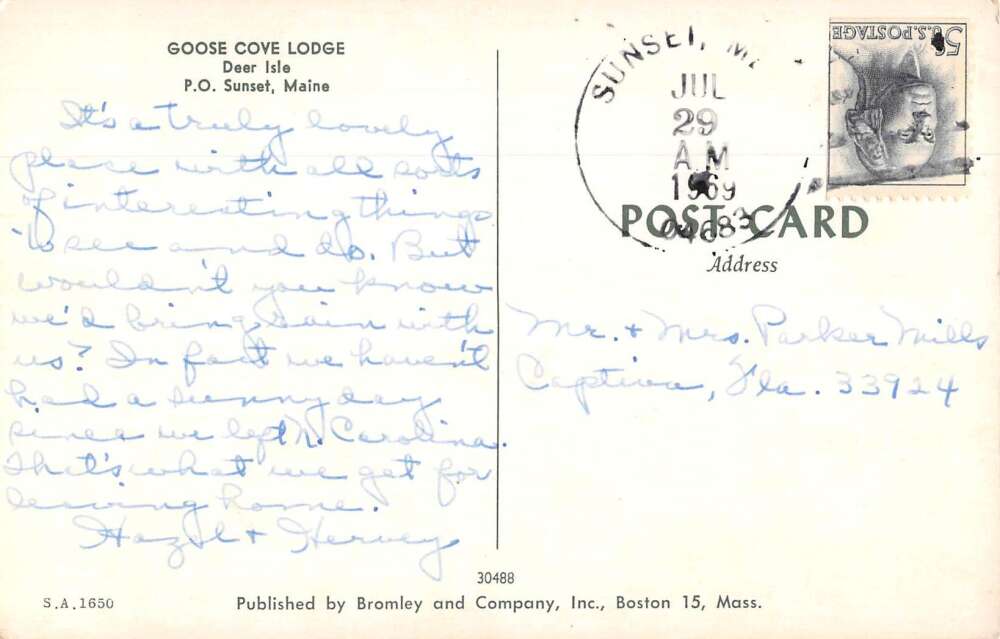 GOOSE COVE LODGE
Deer Isle
P.O. Sunset, Maine
It's a truly lovely
place with all sorts
of interesting things
to see and do. But
wouldn't you know
we'd bring rain with
us? In fact we haven't
had a sunny day
since we left N. Carolina.
That's what we get for
leaving home.
Hazel + Hervey
SUNSET, ME
JUL
29
A.M
1969
04683
5¢ U.S. POSTAGE
POST CARD
Address
Mr. + Mrs. Parker Mills
Captiva, Fla. 33924
30488
S.A.1650
Published by Bromley and Company, Inc., Boston 15, Mass.